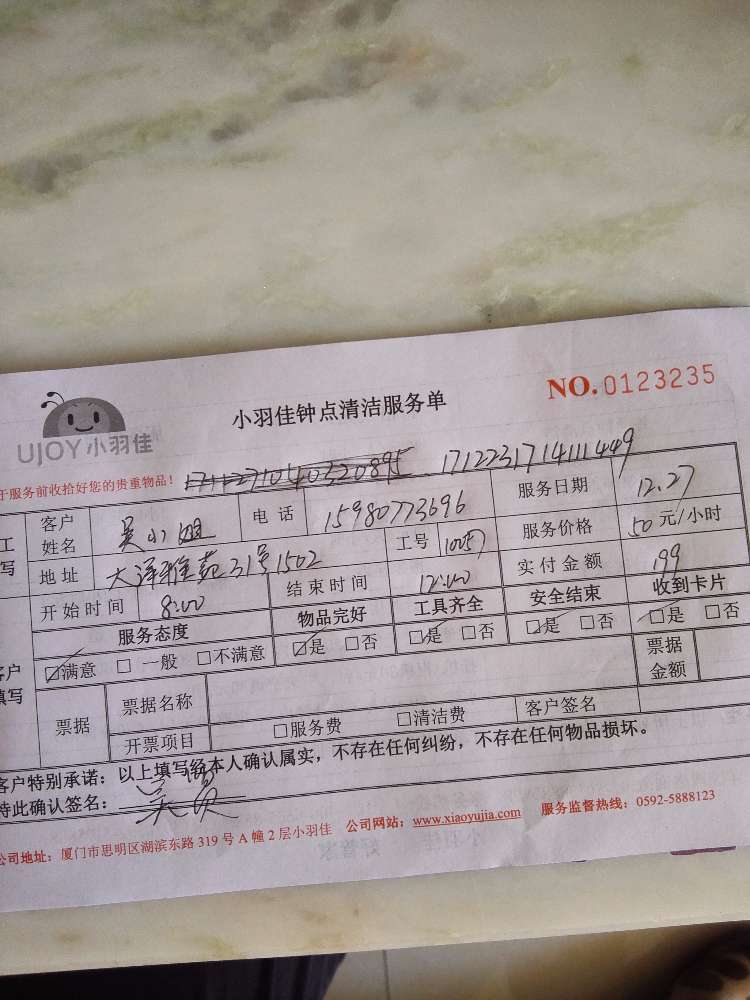 UJOY小羽佳
小羽佳钟点清洁服务单
NO.0123235
于服务前收拾好您的贵重物品！ 1712231714111449
工 写 客户姓名 吴小姐 电话 15980773696 服务日期 12.27
地址 大洋雅苑31号1502 工号 10057 服务价格 50元/小时
开始时间 8:00 结束时间 12:00 实付金额 199
服务态度 物品完好 工具齐全 安全结束 收到卡片
☑满意 □一般 □不满意 ☑是 □否 ☑是 □否 ☑是 □否 ☑是 □否
客户 填写 票据 票据名称 票据金额
开票项目 □服务费 □清洁费 客户签名
客户特别承诺：以上填写经本人确认属实，不存在任何纠纷，不存在任何物品损坏。
特此确认签名：
公司地址：厦门市思明区湖滨东路319号A幢2层小羽佳 公司网站：www.xiaoyujia.com 服务监督热线：0592-5888123